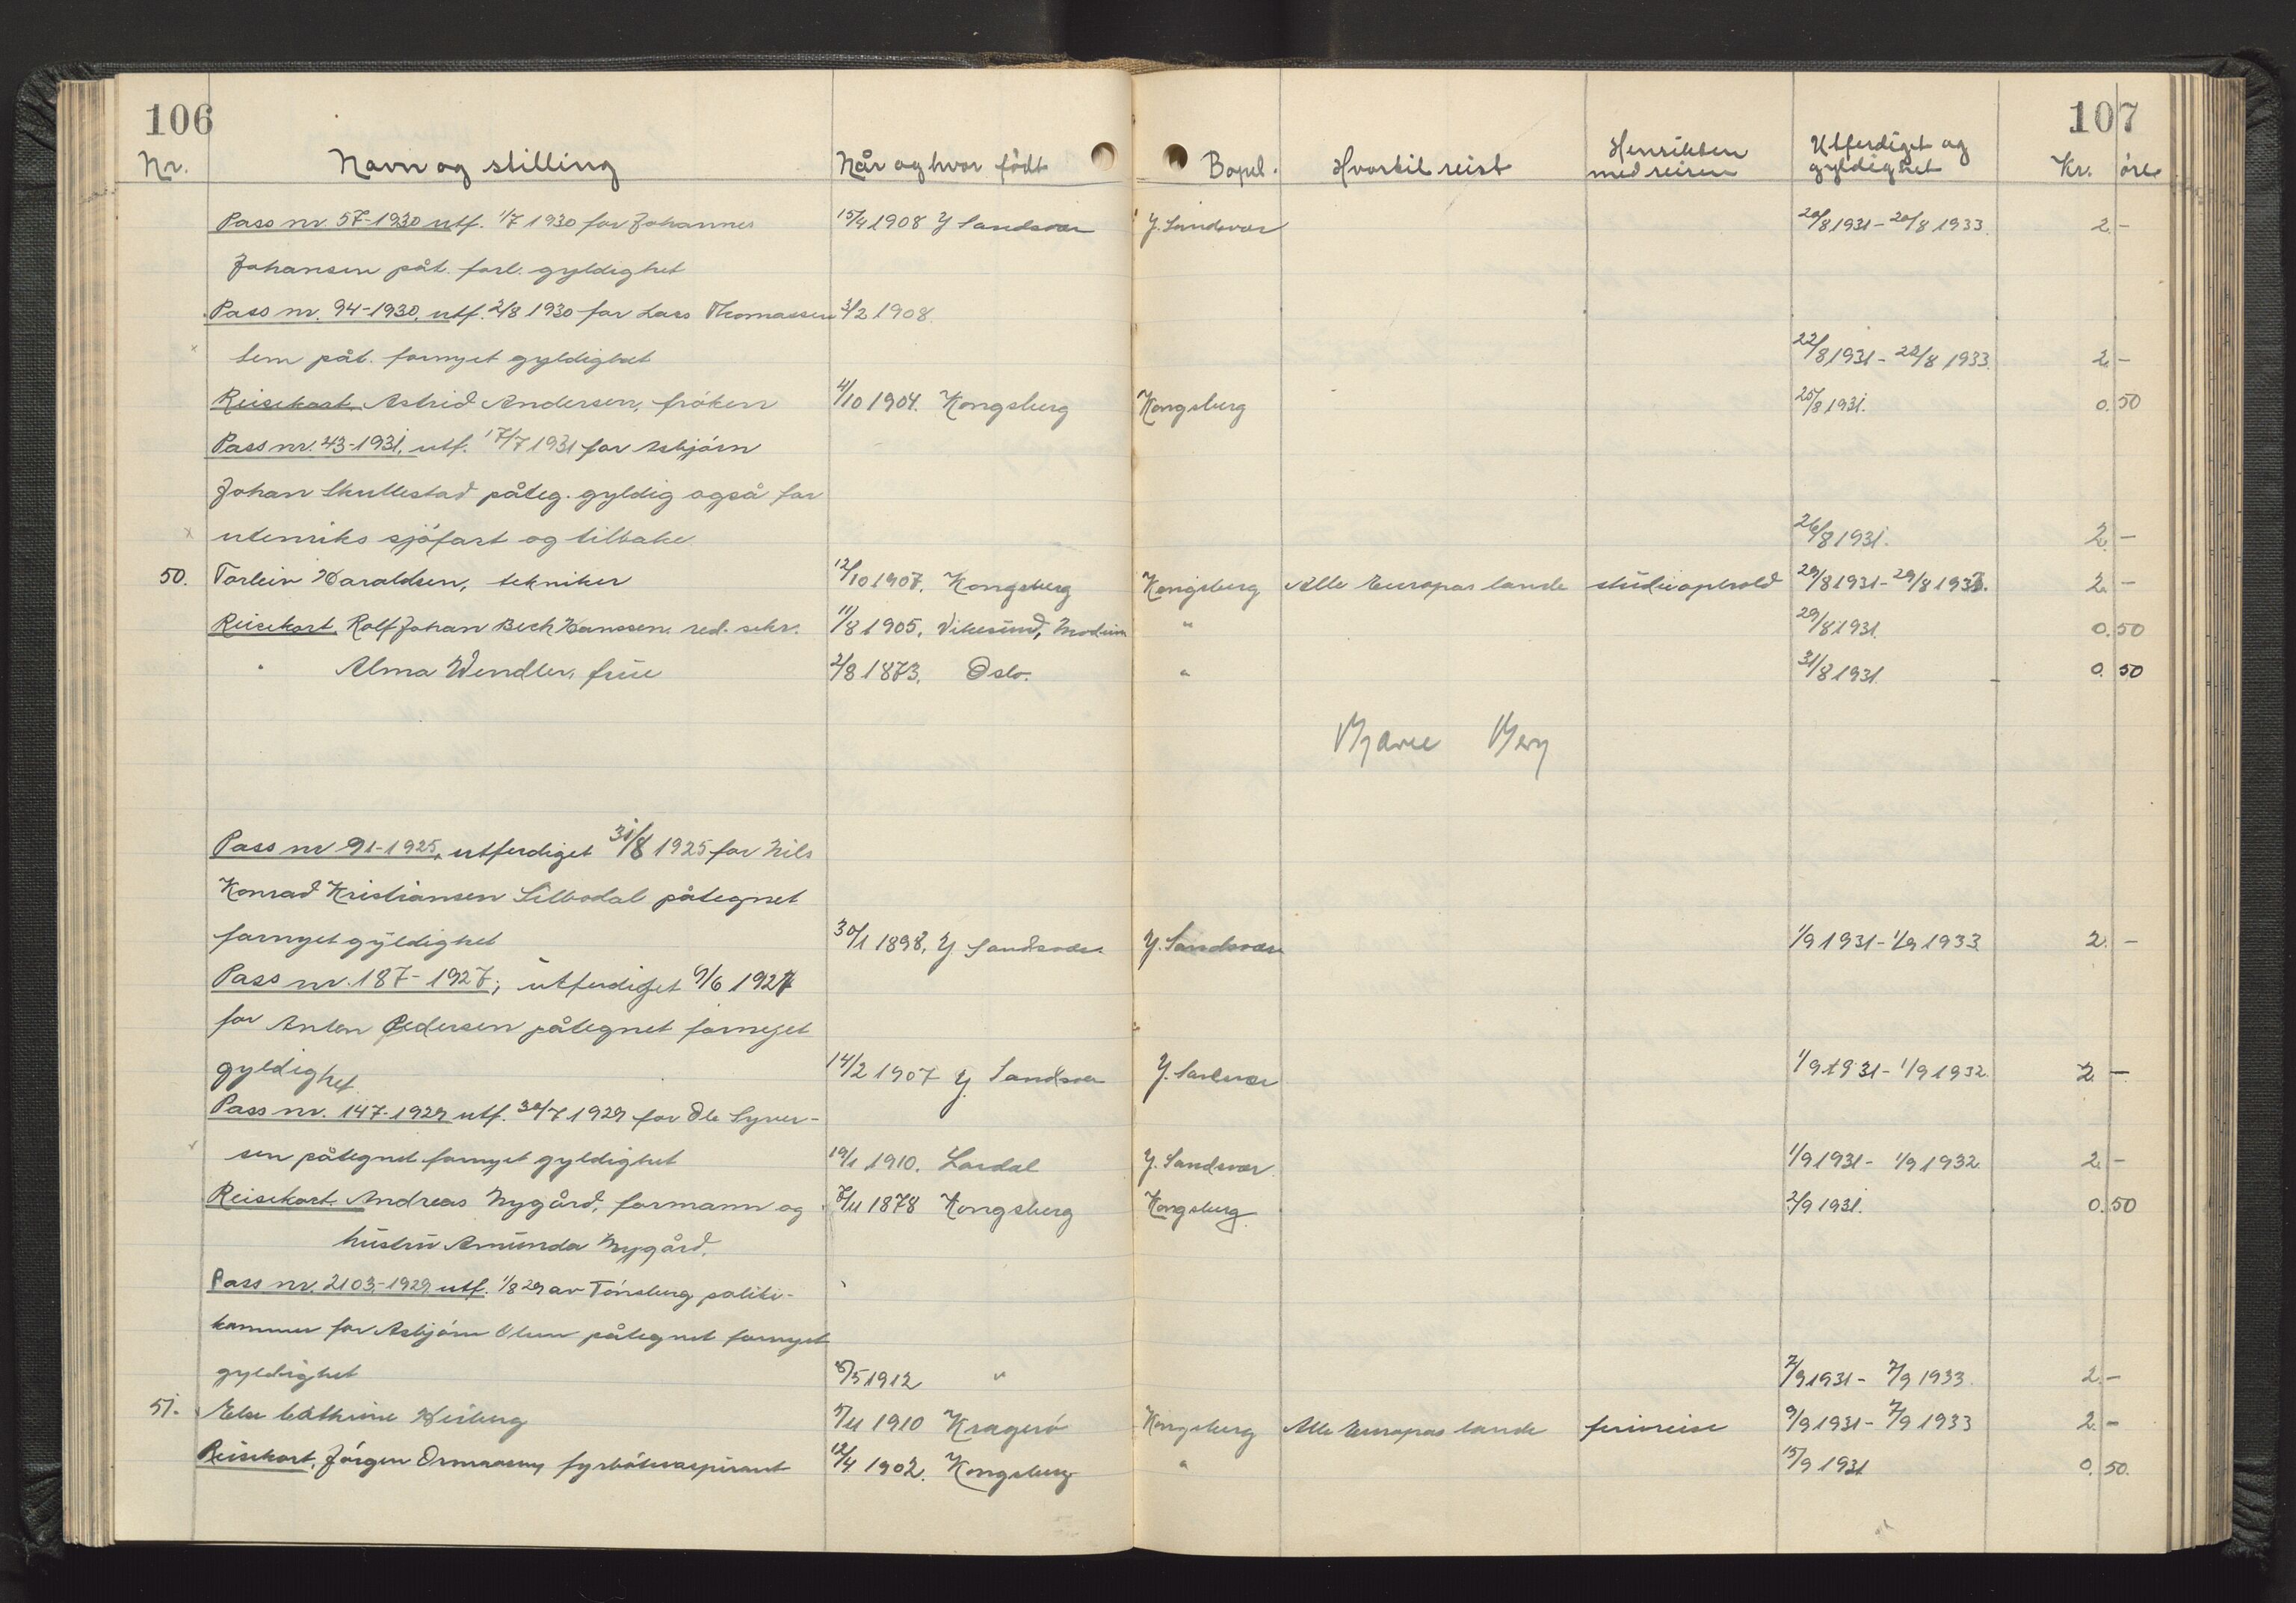 106
107
Nr. Navn og stilling Når og hvor født Bopel. Hvortil reist Hensikten med reisen Utferdiget og gyldighet Kr. øre
Pass nr. 57-1930 utf. 1/7 1930 for Johannes 15/4 1908 Y Sandsvær Y. Sandsvær 20/8 1931 - 20/8 1933. 2. -
Johansen påt. forl. gyldighet
Pass nr. 94-1930, utf. 2/8 1930 for Lars Thomassen 3/2 1908.
Sem påt. fornyet gyldighet 22/8 1931 - 22/8 1933. 2. -
Reisekort. Astrid Andersen, frøken 4/10 1904. Kongsberg Kongsberg 25/8 1931. 0. 50
Pass nr. 43-1931, utf. 17/7 1931 for Asbjørn
Johan Skullestad påteg. gyldig også for
utenriks sjøfart og tilbake 26/8 1931. 2. -
50. Torleiv Haraldsen, tekniker 12/10 1907. Kongsberg Kongsberg Alle Europas lande studieophold 29/8 1931 - 29/8 1933. 2. -
Reisekort. Rolf Johan Bech Hanssen, red. sekr. 11/8 1905. Vikesund, Modum " 29/8 1931. 0. 50
" Alma Wendler, frue 2/8 1873. Oslo. " 31/8 1931. 0. 50
Pass nr 91-1925, utferdiget 31/8 1925 for Nils
Konrad Kristiansen Silbodal påtegnet
fornyet gyldighet 30/1 1898, Y. Sandsvær Y. Sandsvær 1/9 1931 - 1/9 1933 2. -
Pass nr. 187-1927, utferdiget 9/6 1927
for Anton Pedersen påtegnet fornyet
gyldighet 14/2 1907 Y. Sandsvær Y. Sandsvær 1/9 1931 - 1/9 1932. 2. -
Pass nr. 147-1929 utf. 30/7 1929 for Ole Syver-
sen påtegnet fornyet gyldighet 19/1 1910. Lardal Y. Sandsvær. 1/9 1931 - 1/9 1932 2. -
Reisekort. Andreas Nygård, formann og 7/11 1878 Kongsberg Kongsberg. 2/9 1931. 0. 50
hustru Amunda Nygård.
Pass nr. 2103-1929 utf. 1/8 29 av Tønsberg politi-
kammer for Asbjørn Olsen påtegnet fornyet
gyldighet 8/5 1912 " 7/9 1931 - 7/9 1933. 2. -
51. Else Cathrine Heiberg 5/11 1910 Kragerø Kongsberg Alle Europas lande feriereise 9/9 1931 - 7/9 1933 2. -
Reisekort, Jørgen fyrbøteraspirant 12/4 1902. Kongsberg " 15/9 1931 0. 50.